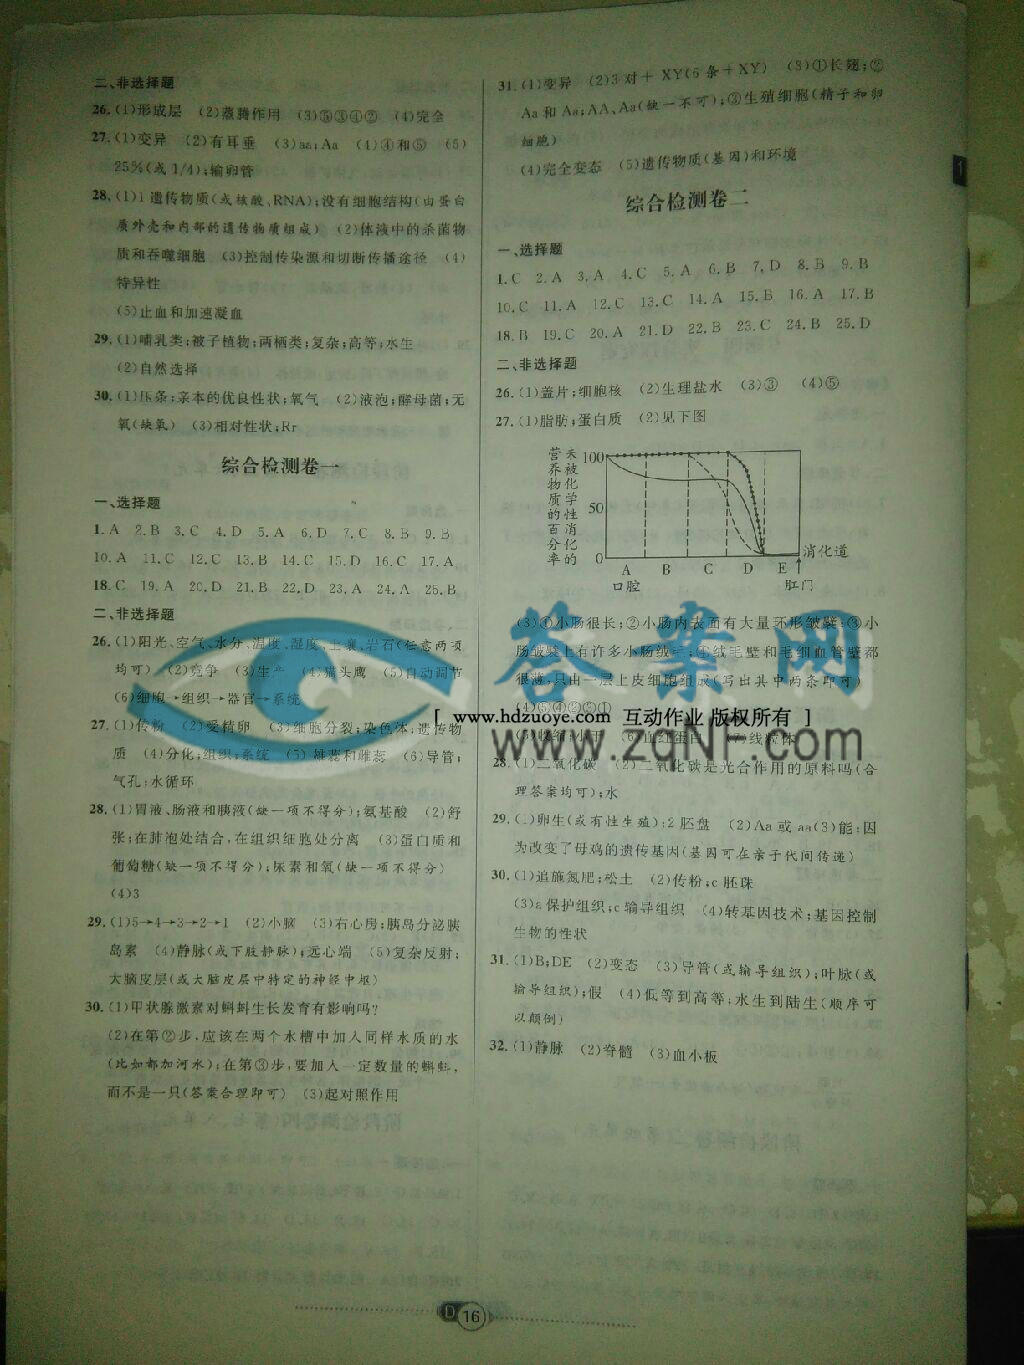 二、非选择题
26.(1)形成层 (2)蒸腾作用 (3)⑤③④② (4)完全
27.(1)变异 (2)有耳垂 (3)aa;Aa (4)④和⑤ (5)
25%(或1/4);输卵管
28.(1)1遗传物质(或核酸、RNA);没有细胞结构(由蛋白
质外壳和内部的遗传物质组成) (2)体液中的杀菌物
质和吞噬细胞 (3)控制传染源和切断传播途径 (4)
特异性
(5)止血和加速凝血
29.(1)哺乳类;被子植物;两栖类;复杂;高等;水生
(2)自然选择
30.(1)压条;亲本的优良性状;氧气 (2)液泡;酵母菌;无
氧(缺氧) (3)相对性状;Rr
综合检测卷一
一、选择题
1.A 2.B 3.C 4.D 5.A 6.D 7.C 8.B 9.B
10.A 11.C 12.C 13.B 14.C 15.D 16.C 17.A
18.C 19.A 20.D 21.B 22.D 23.A 24.A 25.B
二、非选择题
26.(1)阳光、空气、水分、温度、湿度、土壤、岩石(任意两项
均可) (2)竞争 (3)生产 (4)猫头鹰 (5)自动调节
(6)细胞→组织→器官→系统
27.(1)传粉 (2)受精卵 (3)细胞分裂;染色体;遗传物
质 (4)分化;组织;系统 (5)雄蕊和雌蕊 (6)导管;
气孔;水循环
28.(1)胃液、肠液和胰液(缺一项不得分);氨基酸 (2)舒
张;在肺泡处结合,在组织细胞处分离 (3)蛋白质和
葡萄糖(缺一项不得分);尿素和氧(缺一项不得分)
(4)3
29.(1)5→4→3→2→1 (2)小脑 (3)右心房;胰岛分泌胰
岛素 (4)静脉(或下肢静脉);远心端 (5)复杂反射;
大脑皮层(或大脑皮层中特定的神经中枢)
30.(1)甲状腺激素对蝌蚪生长发育有影响吗?
(2)在第②步,应该在两个水槽中加入同样水质的水
(比如都加河水);在第③步,要加入一定数量的蝌蚪,
而不是一只(答案合理即可) (3)起对照作用
31.(1)变异 (2)3对+XY(6条+XY) (3)①长翅;②
Aa和Aa;AA、Aa(缺一不可);③生殖细胞(精子和卵
细胞)
(4)完全变态 (5)遗传物质(基因)和环境
综合检测卷二
一、选择题
1.C 2.A 3.A 4.C 5.A 6.B 7.D 8.B 9.B
10.C 11.A 12.C 13.C 14.A 15.B 16.A 17.B
18.B 19.C 20.A 21.D 22.B 23.C 24.B 25.D
二、非选择题
26.(1)盖片;细胞核 (2)生理盐水 (3)③ (4)⑤
27.(1)脂肪;蛋白质 (2)见下图
营养物质的百分率
未被化学性消化的
100
50
0
A B C D E
消化道
口腔 肛门
(3)①小肠很长;②小肠内表面有大量环形皱襞;③小
肠皱襞上有许多小肠绒毛;④绒毛壁和毛细血管壁都
很薄,只由一层上皮细胞组成(写出其中两条即可)
28.(1)二氧化碳 (2)二氧化碳是光合作用的原料吗(合
理答案均可);水
29.(1)卵生(或有性生殖);2胚盘 (2)Aa或aa(3)能;因
为改变了母鸡的遗传基因(基因可在亲子代间传递)
30.(1)追施氮肥;松土 (2)传粉;c胚珠
(3)a保护组织;c输导组织 (4)转基因技术;基因控制
生物的性状
31.(1)B;DE (2)变态 (3)导管(或输导组织);叶脉(或
输导组织);假 (4)低等到高等;水生到陆生(顺序可
以颠倒)
32.(1)静脉 (2)脊髓 (3)血小板
答案网
[ www.hdzuoye.com 互动作业 版权所有 ]
D 16